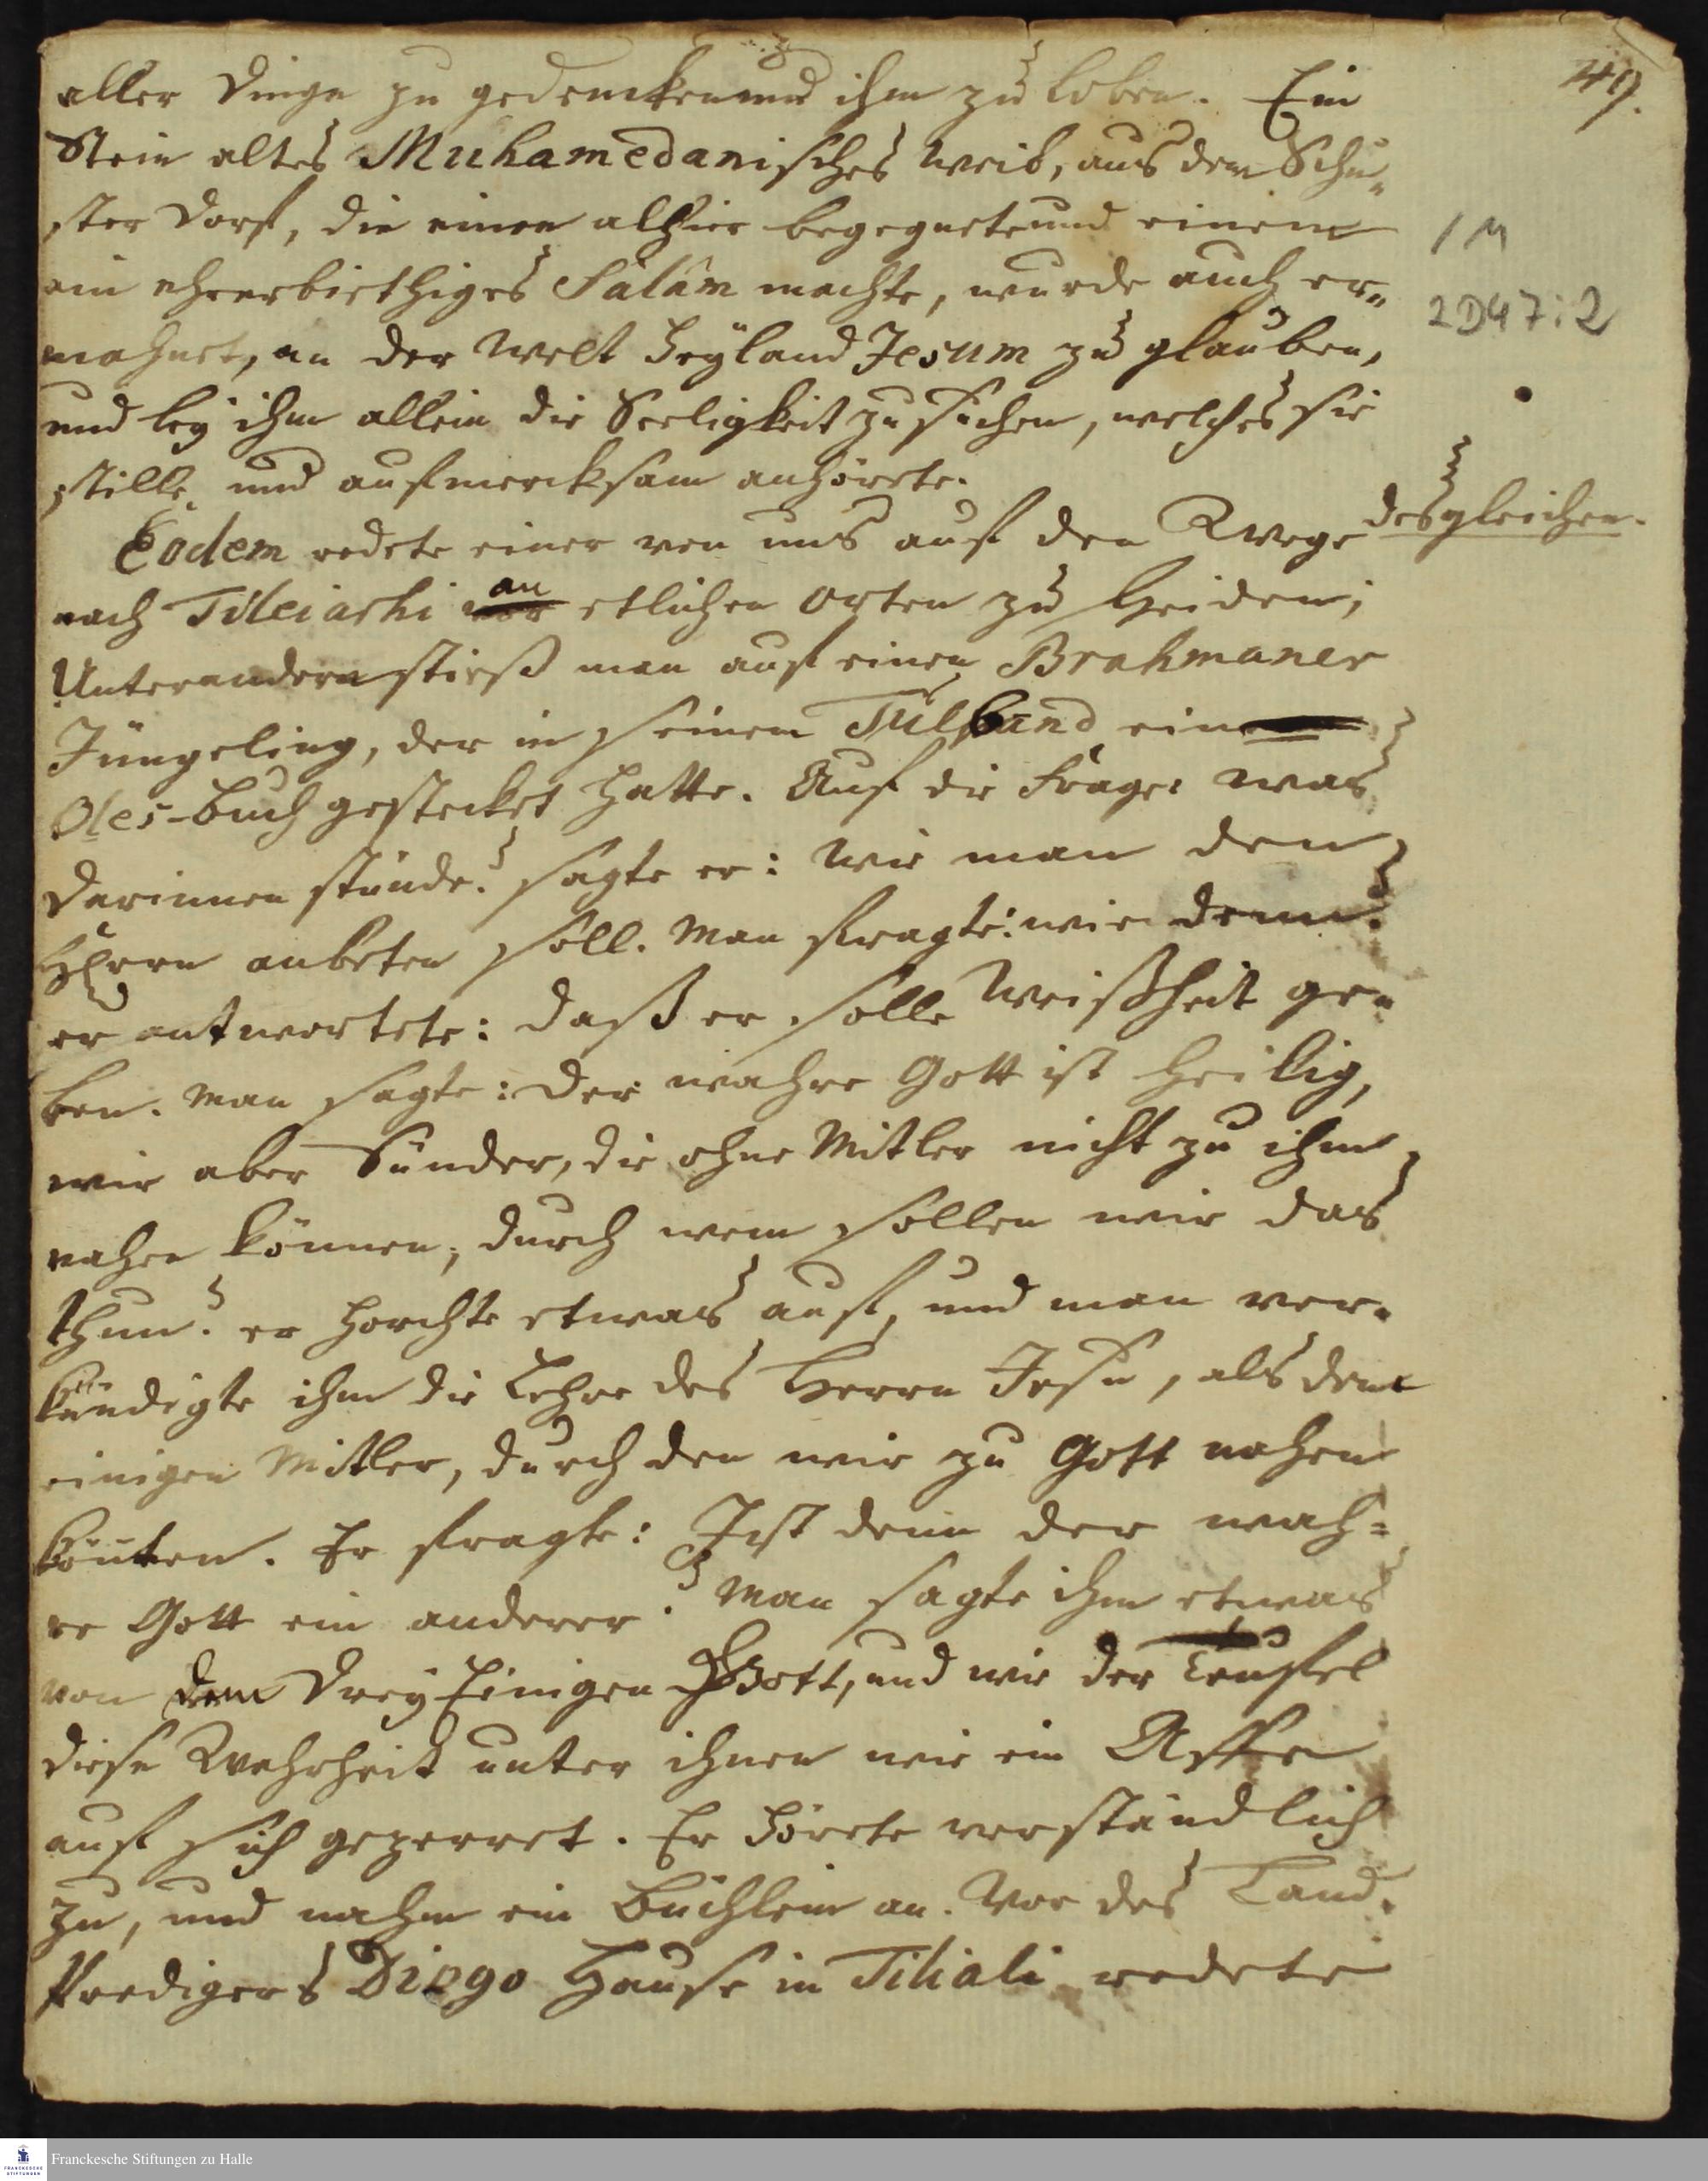 49.
aller Dinge zu gedencken und ihm zu loben. Ein
Stein altes Muhamedanisches Weib, aus dem Schu-
ster Dorf, die einen alhier begegnete und einem
ein ehrerbiethiges Salâm machte, wurde auch er-
mahnet, an der Welt Heÿland Jesum zu glauben,
und beÿ ihm allein die Seeligkeit zu suchen, welches sie
stille und aufmercksam anhörete.
Eodem redete einer von uns auf den Wege
desgleichen.
nach Tileiarhi an etlichen Orten zu Heiden;
Unter andern stieß man auf einen Brahmaner
Jüngeling, der in seinem Tulband ein
Oles-Buch gestecket hatte. Auf die Frage: was
darinnen stünde? sagte er: wie man den
HErrn anbeten soll. Man fragte: wie denn?
er antwortete: daß er solle Weißheit ge-
ben. Man sagte: der wahre Gott ist heilig,
wir aber Sünder, die ohne Mitler nicht zu ihm
nahen können; durch wem sollen wir das
thun? er horchte etwas auf, und man ver-
kündigte ihm die Lehre des Herrn Jesu, als dem
einigen Mitler, durch den wir zu Gott nahen
könten. Er fragte: Ist denn der wah-
re Gott ein anderer? Man sagte ihm etwas
von dem Dreÿ Einigen Gott, und wie der Teufel
diese Wahrheit unter ihnen wie ein Affe
auf sich gezerret. Er hörete verständlich
zu, und nahm ein Büchlein an. Vor des Land-
Predigers Diogo Hause in Tiliali redete
1 M
2D47:2
Franckesche Stiftungen zu Halle